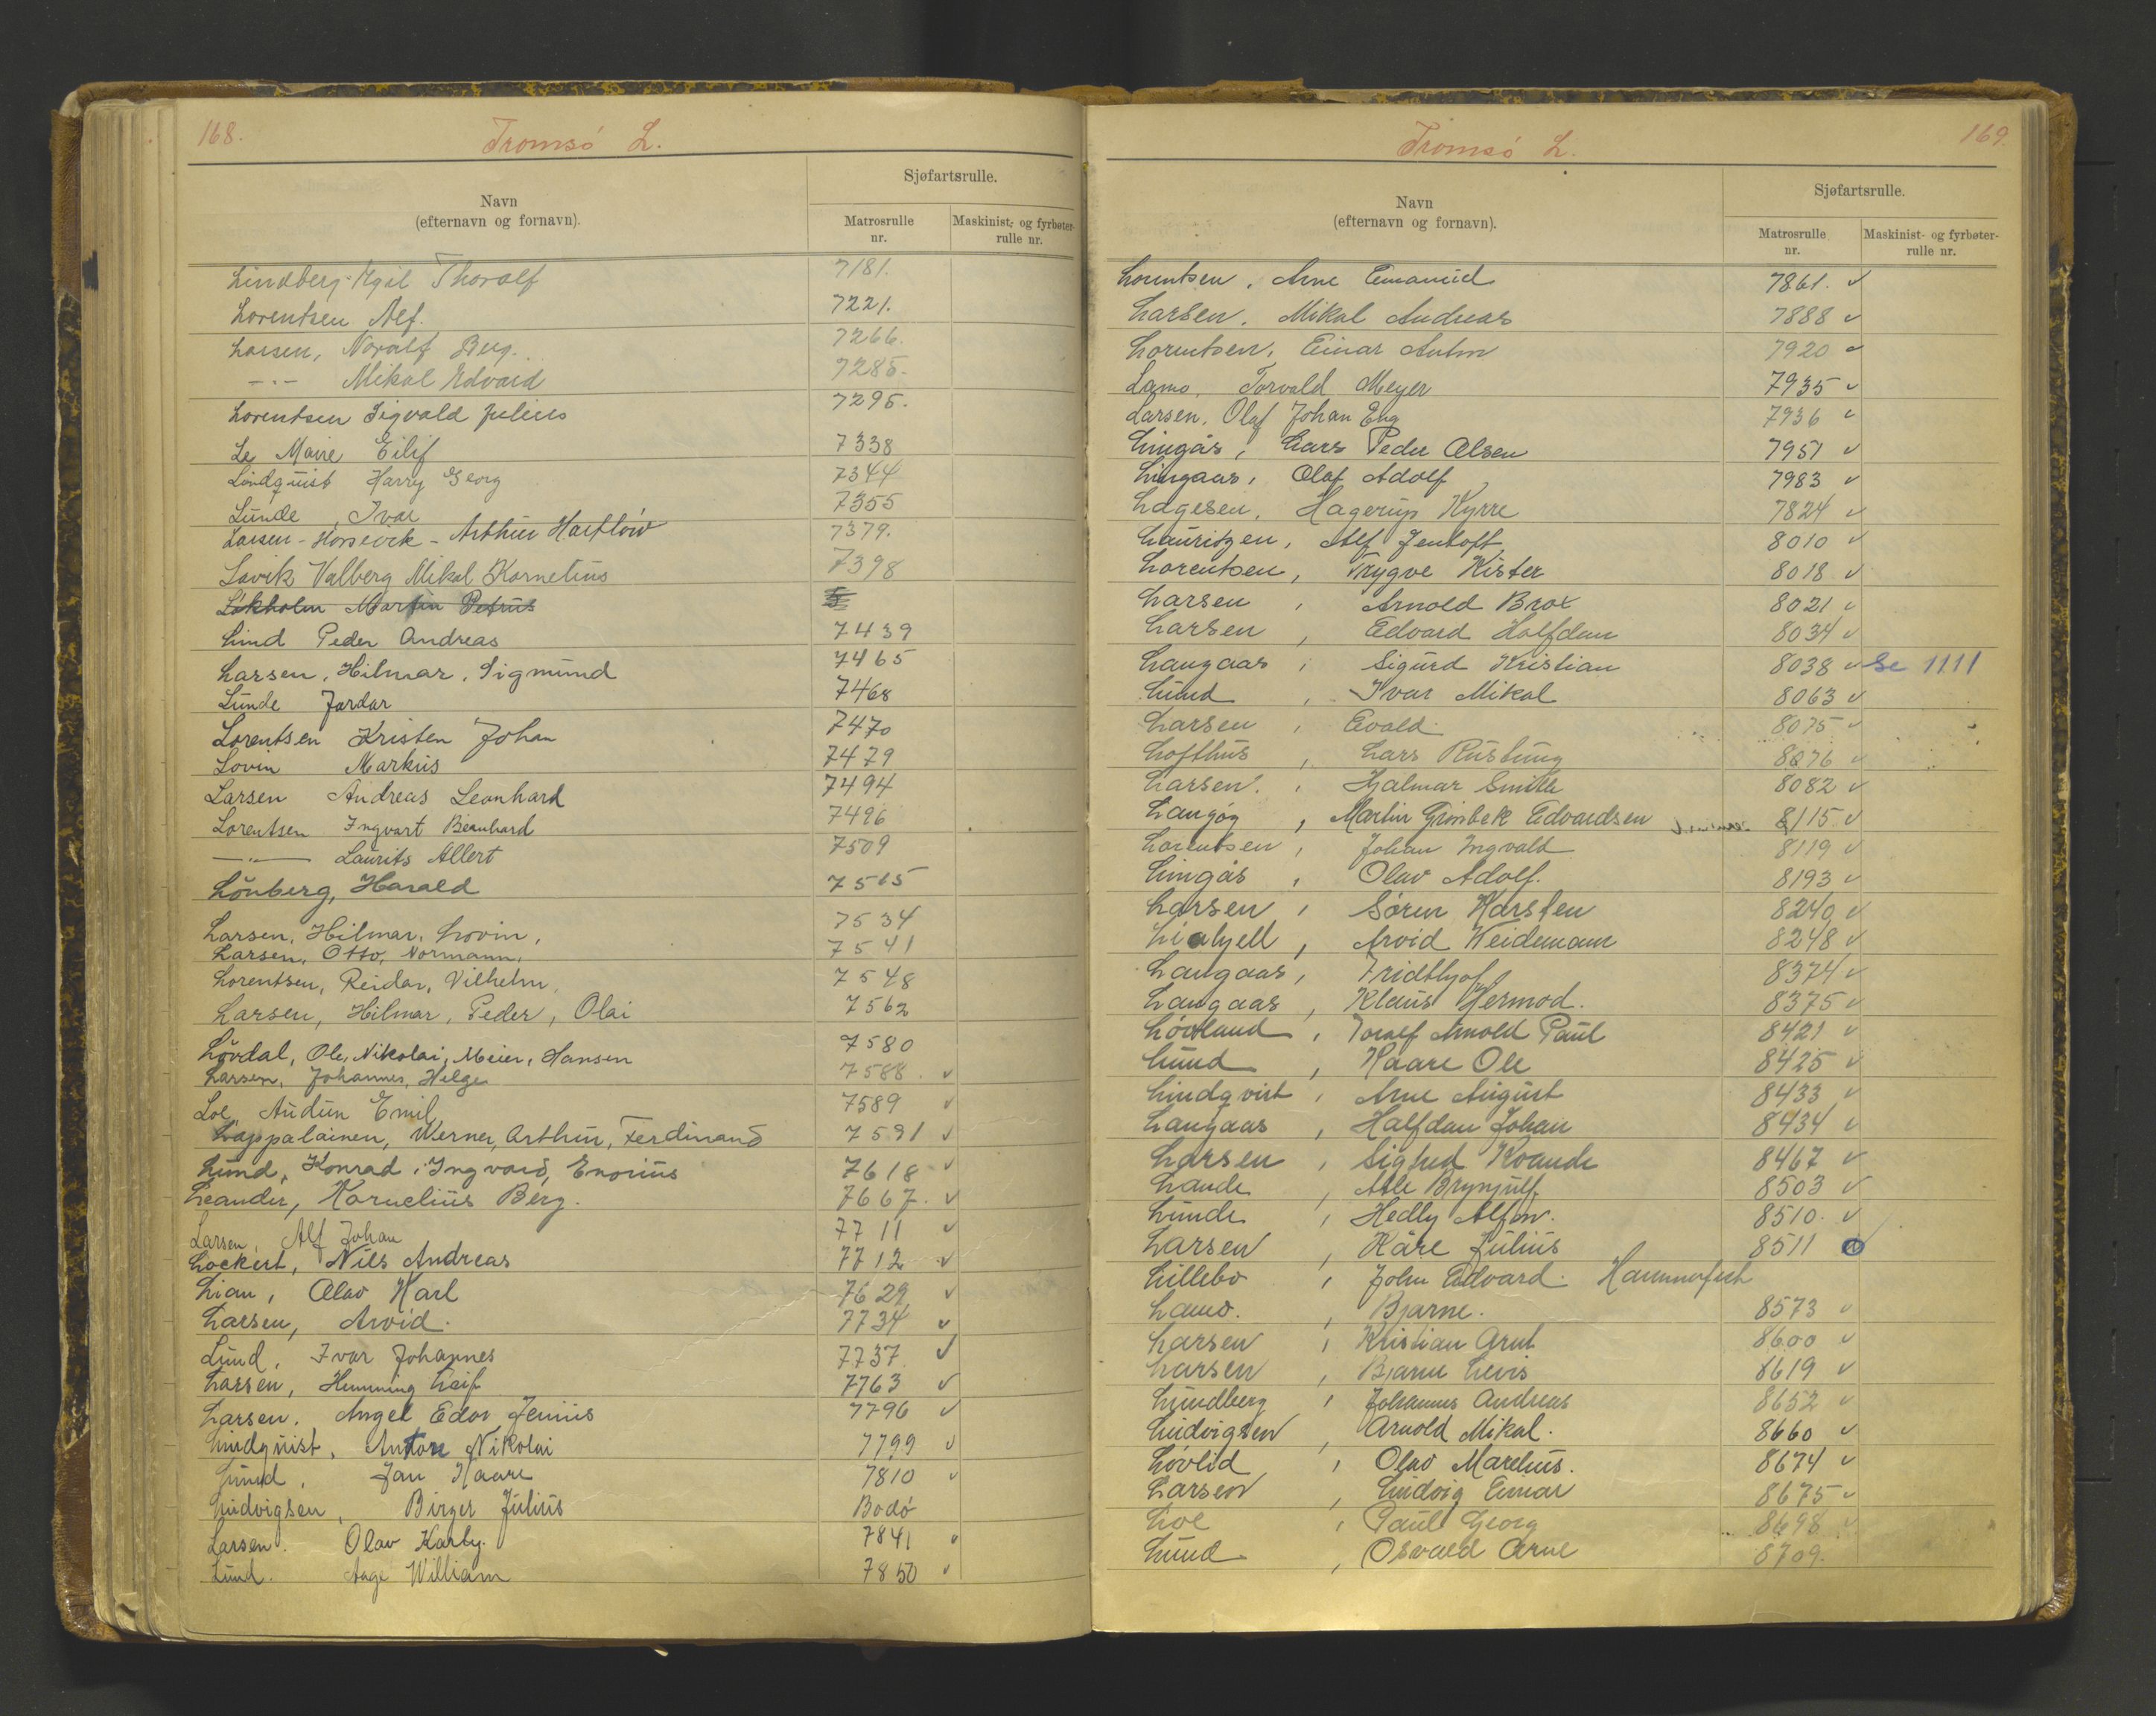 168.
Tromsö L.
Navn
(efternavn og fornavn).
Sjøfartsrulle.
Matrosrulle nr.
Maskinist- og fyrbøter-rulle nr.
Lindberg Thoralf 7181.
Lorentsen Alf. 7221.
Larsen, Noralf Berg. 7266.
-"- Mikal Edvard 7285.
Lorentsen Sigvald Julius 7295.
Le Maire Eilif 7338
Lindquist Harry Georg 7344
Lunde, Ivar 7355
Larsen - Arthur Hartlöw 7379.
Lavik Valberg Mikal Kornelius 7398
Lökholm Martin Petrus
Lind Peder Andreas 7439
Larsen, Hilmar, Sigmund 7465
Lunde Jardar 7468
Lorentsen Kristen Johan 7470
Lovin Markus 7479
Larsen Andreas Leonhard 7494
Lorentsen Ingvart Bernhard 7496
-"- Laurits Allert 7509
Lönberg, Harald 7515
Larsen, Hilmar, Lovin, 7534
Larsen, Otto, Normann, 7541
Lorentsen, Reidar, Vilhelm, 7548
Larsen, Hilmar, Peder, Olai 7562
Lövdal, Ole, Nikolai, Meier, Hansen 7580
Larsen, Johannes, Helge 7588. v
Loe, Audun Emil 7589 v
Lappalainen, Werner, Arthur, Ferdinand 7591 v
Lund, Konrad, Ingvard, Enorius 7618 v
Leander, Kornelius Berg. 7667. v
Larsen, Alf Johan 7711 v
Lockert, Nils Andreas 7712 v
Lian, Olav Karl 7629 v
Larsen, Arvid. 7734 v
Lund, Ivar Johannes 7737 v
Larsen, Hemming Leif 7763 v
Larsen. Angel Edov Jenius 7796 v
Lindquist, Anton Nikolai 7799 v
Lund, Jan Kaare 7810 v
Ludvigsen, Birger Julius Bodö
Larsen. Olav Karby. 7841 v
Lund. Aage William 7850 v
169.
Tromsö L.
Navn
(efternavn og fornavn).
Sjøfartsrulle.
Matrosrulle nr.
Maskinist- og fyrbøter-rulle nr.
Lorentsen, Arne Emanuel 7861. v
Larsen, Mikal Andreas 7888 v
Lorentsen, Einar Anton 7920 v
Lamo, Torvald Meyer 7935 v
Larsen, Olaf Johan Eng 7936 v
Lingås, Lars Peder Olsen 7951 v
Lingaas, Olaf Adolf 7983 v
Lagesen, Hagerup Kyrre 7824 v
Lauritzen, Alf Jentoft 8010 v
Lorentsen, Trygve Kister 8018 v
Larsen, Arnold Brox 8021 v
Larsen, Edvard Halfdan 8034 v
Langaas, Sigurd Kristian 8038 v Se 1111
Lund, Ivar Mikal 8063 v
Larsen, Evald 8075 v
Lofthus, Lars Rustung 8076 v
Larsen, Hjalmar Smith 8082 v
Langöy, Martin Grönbek Edvardsen 8115 v
Lorentsen, Johan Ingvald 8119 v
Lingås, Olav Adolf. 8193 v
Larsen, Sören Karsten 8240 v
Liabjell, Arvid Weidemann 8248 v
Langaas, Fridthjof 8374 v
Langaas, Klaus Hermod. 8375 v
Lövland, Toralf Arnold Paul 8421 v
Lund, Kaare Ole 8425 v
Lindqvist, Arne August 8433 v
Langaas, Halfdan Johan 8434 v
Larsen, Sigfred Kvande 8467 v
Lande, Atle Brynjulf 8503 v
Lunde, Hedly Alfon. 8510. v
Larsen, Kåre Julius 8511 v
Lillebo, John Edvard. Hammerfest
Lamo., Bjarne. 8573 v
Larsen, Kristian Arnt 8600 v
Larsen, Bjarne Levis 8619 v
Lundberg, Johannes Andreas 8652 v
Ludvigsen, Arnold Mikal. 8660 v
Lövlid, Olav Marelius. 8674 v
Larsen, Ludvig Einar 8675 v
Loe, Paul Georg 8698 v
Lund, Osvald Arne 8709.